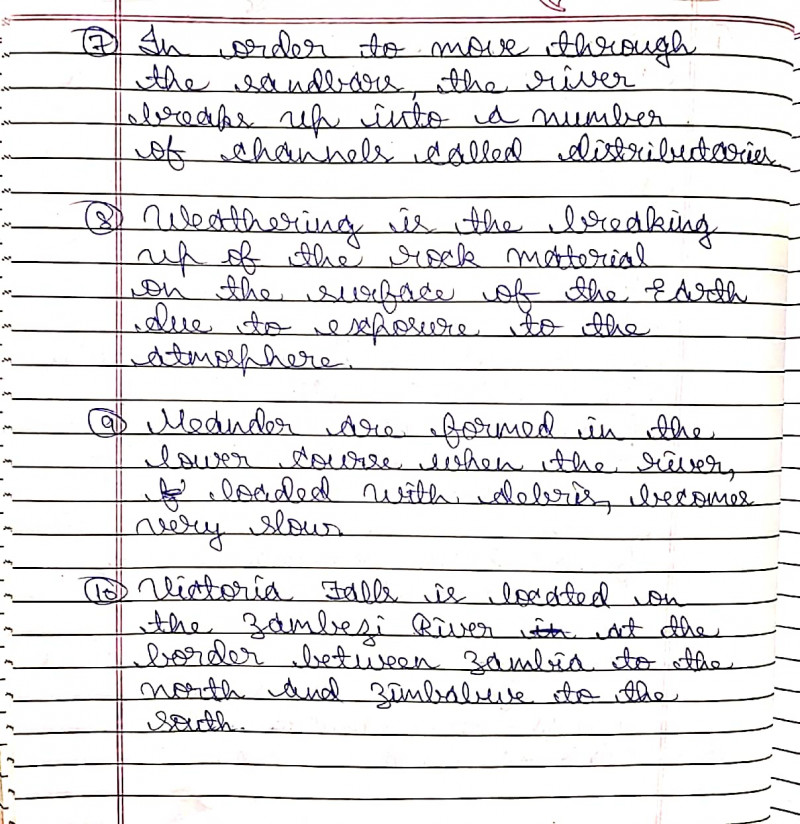 7 In order to move through
the sandbars, the river
breaks up into a number
of channels called distributaries
8 Weathering is the breaking
up of the rock material
on the surface of the Earth
due to exposure to the
atmosphere.
9 Meander are formed in the
lower course when the river,
loaded with debris, becomes
very slow
10 Victoria Falls is located on
the Zambezi River in at the
border between Zambia to the
north and Zimbabwe to the
south.